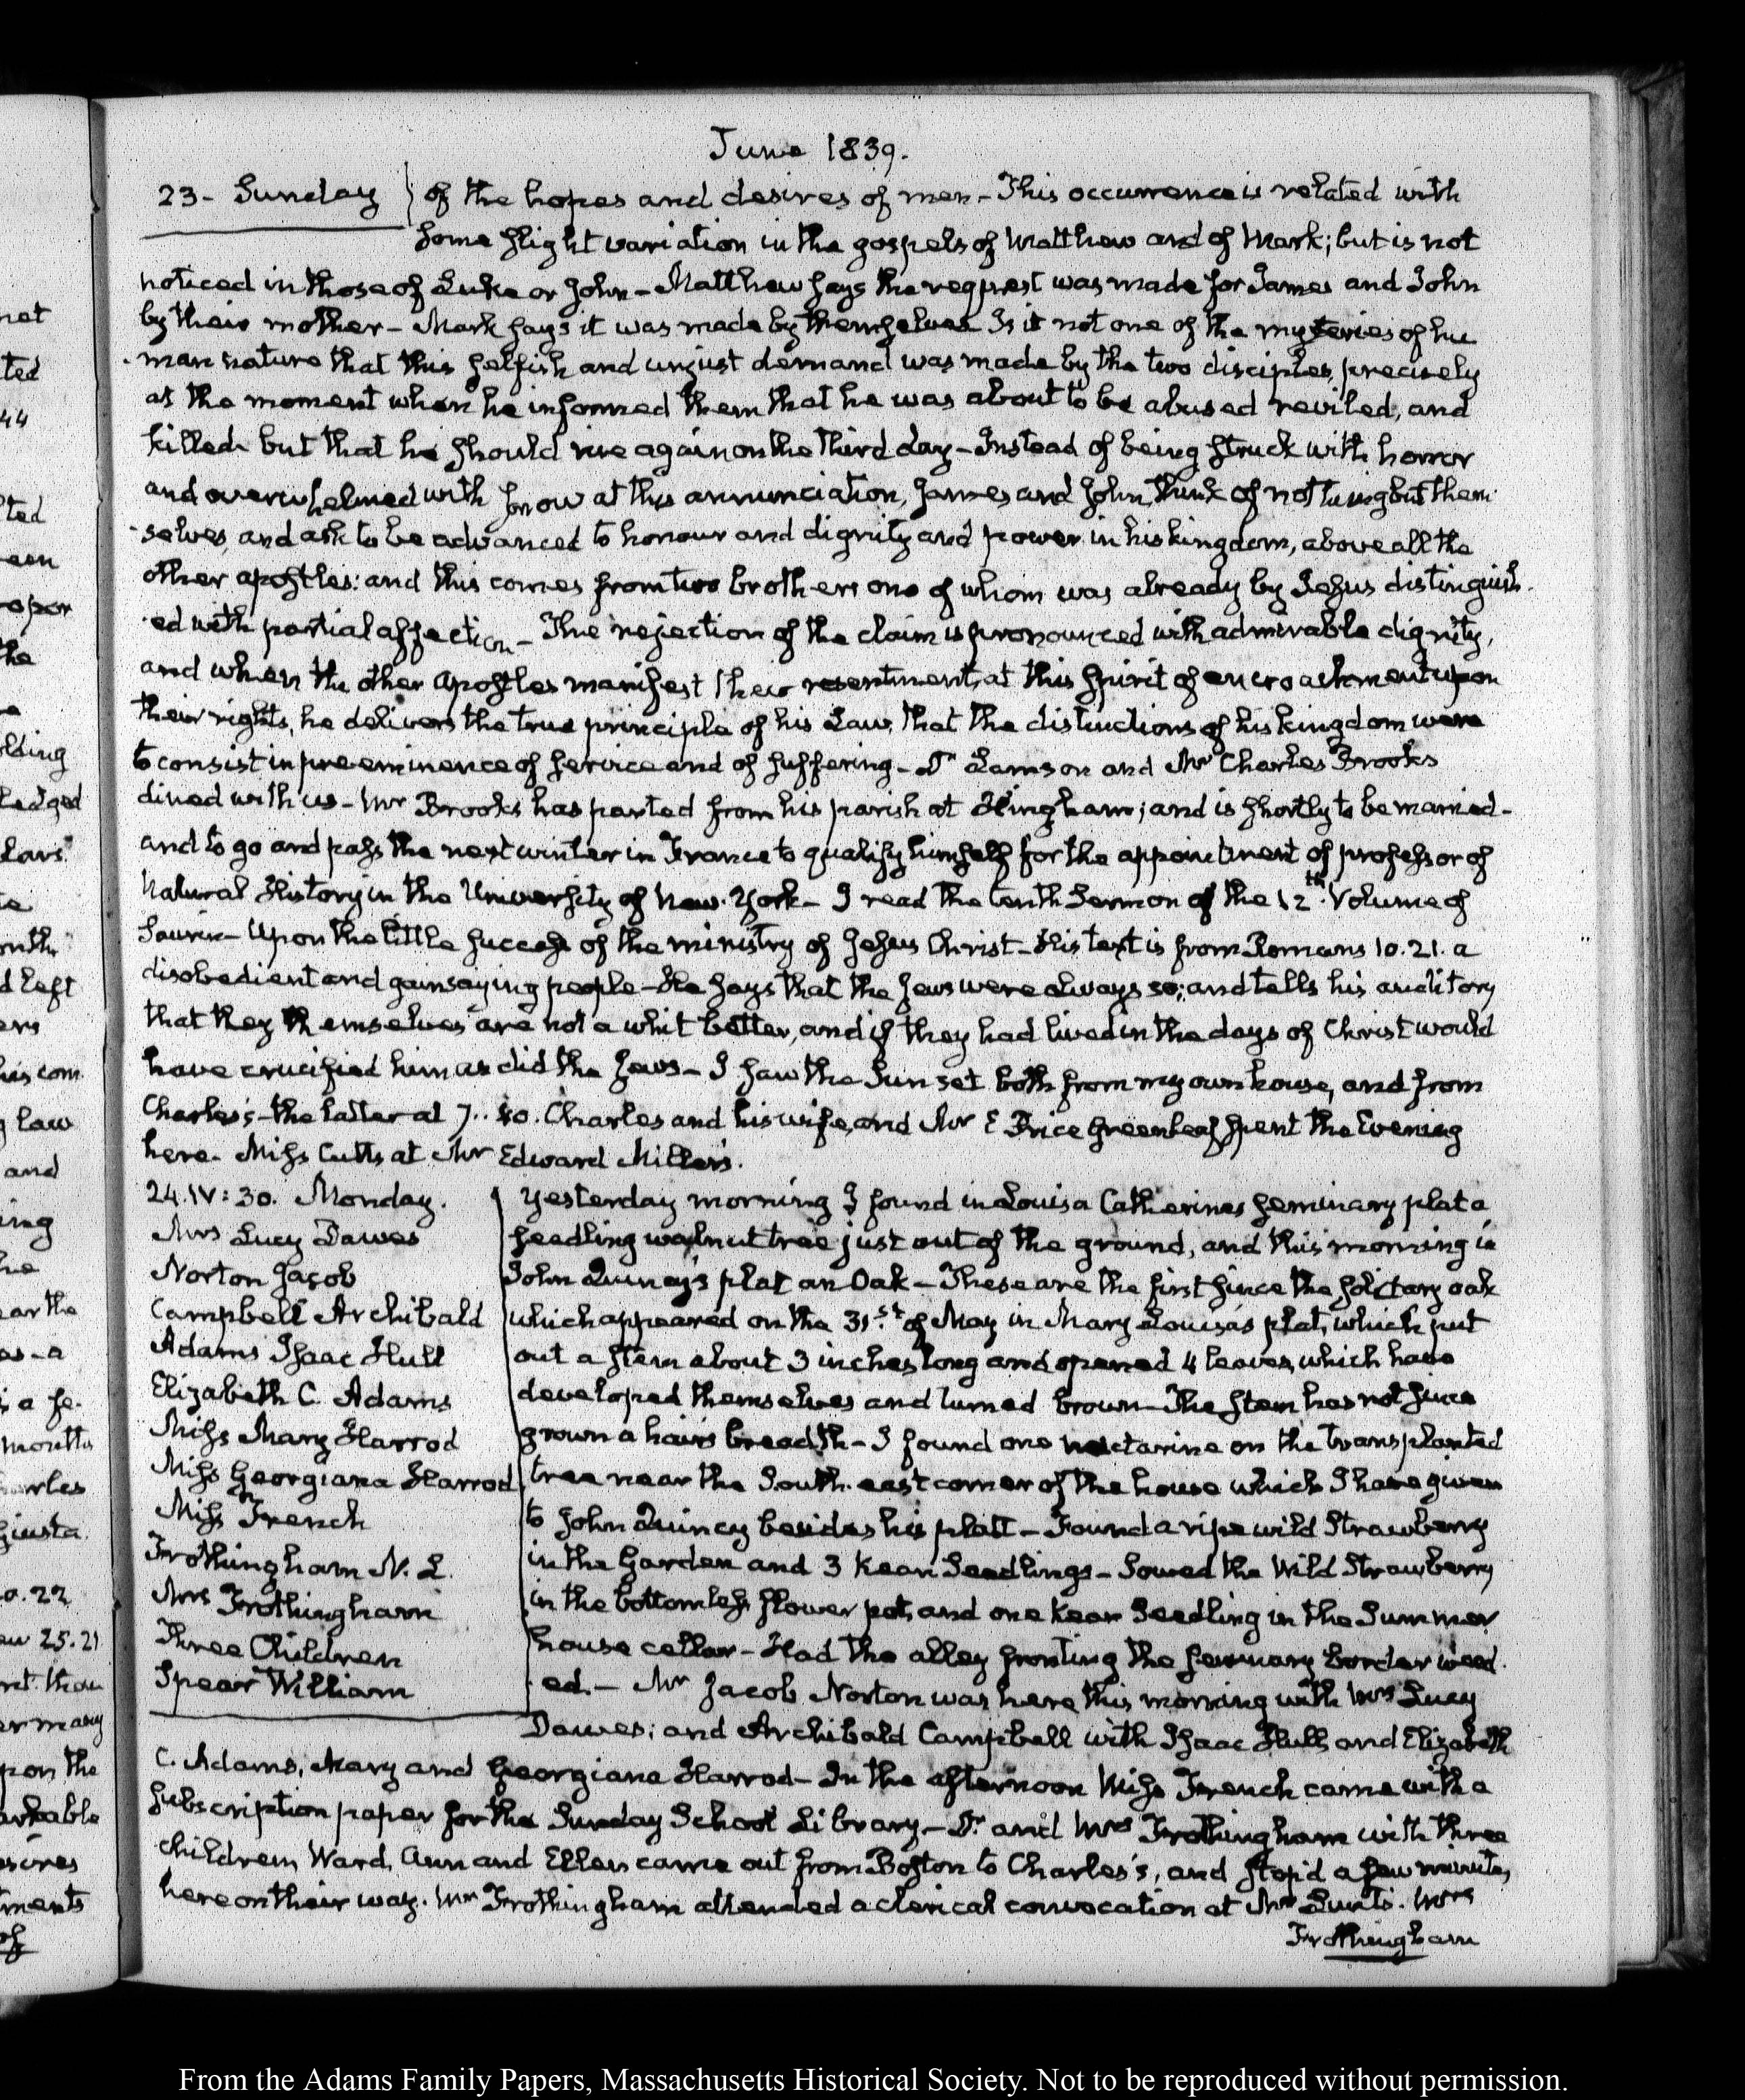 June 1839.
23 - Sunday } of the hopes and desires of men - This occurrence is related with
some slight variation in the gospels of Matthew and of Mark; but is not
noticed in those of Luke or John - Matthew says the request was made for James and John
by their mother - Mark says it was made by themselves Is it not one of the mysteries of hu
-man nature that this selfish and unjust demand was made by the two disciples, precisely
at the moment when he informed them that he was about to be abused reviled, and
killed but that he should rise again on the third day - Instead of being struck with horror
and overwhelmed with sorrow at this annunciation, James and John, think of nothing but them
-selves, and ask to be advanced to honour and dignity and power in his kingdom, above all the
other apostles: and this comes from two brothers one of whom was already by Jesus distinguish
-ed with partial affection - The rejection of the claim is pronounced with admirable dignity,
and when the other Apostles manifest their resentment, at this spirit of encroachment upon
their rights, he delivers the true principle of his Law, that the distinctions of his kingdom were
to consist in pre-eminence of service and of suffering - Dr Lamson and Mr Charles Brooks
dined with us - Mr Brooks has parted from his parish at Hingham; and is shortly to be married -
and to go and pass the next winter in France to qualify himself for the appointment of professor of
Natural History in the University of New-York - I read the tenth Sermon of the 12th. Volume of
Saurin - Upon the little success of the ministry of Jesus Christ - His text is from Romans 10.21. a
disobedient and gainsaying people - He says that the Jews were always so; and tells his auditory
that they themselves are not a whit better, and if they had lived in the days of Christ would
have crucified him as did the Jews - I saw the Sun set both from my own house, and from
Charles's - the latter at 7.. 40. Charles and his wife, and Mr E Price Greenleaf spent the Evening
here. Miss Cutts at Mr Edward Miller's.
24. IV: 30. Monday.
Mrs Lucy Dawes
Norton Jacob
Campbell Archibald
Adams Isaac Hull
Elizabeth C. Adams
Miss Mary Harrod
Miss Georgiana Harrod
Miss French
Frothingham N. L.
Mrs Frothingham
Three Children
Spear William
Yesterday morning I found in Louisa Catherine's seminary plat a
seedling walnut tree just out of the ground, and this morning in
John Quincy's plat an Oak - These are the first since the solitary oak
which appeared on the 31st. of May in Mary Louisa's plat, which put
out a stem about 3 inches long and opened 4 leaves, which have
developed themselves and turned brown - The stem has not since
grown a hair's breadth - I found one nectarine on the transplanted
tree near the South-east corner of the house which I have given
to John Quincy besides his platt - Found a ripe wild Strawberry
in the Garden and 3 Kean Seedlings - Sowed the Wild Strawberry
in the bottomless flower pot, and one Kean Seedling in the Summer
house cellar - Had the alley fronting the seminary border weed
-ed. - Mr Jacob Norton was here this morning with Mrs Lucy
Dawes; and Archibald Campbell with Isaac Hull, and Elizabeth
C. Adams, Mary and Georgiana Harrod - In the afternoon Miss French came with a
subscription paper for the Sunday School Library - Dr. and Mrs Frothingham with three
children, Ward, Ann and Ellen came out from Boston to Charles's, and stop'd a few minutes
here on their way. Mr Frothingham attended a clerical convocation at Mr Lunt's. Mrs
Frothingham
From the Adams Family Papers, Massachusetts Historical Society. Not to be reproduced without permission.